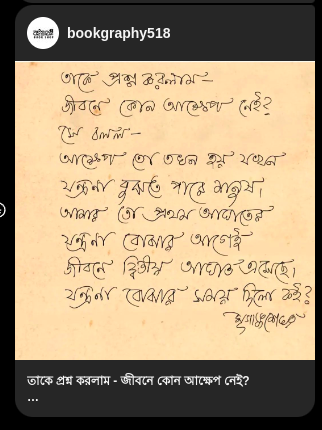 bookgraphy518
তাকে প্রশ্ন করলাম–
জীবনে কোন আক্ষেপ নেই?
সে বলল–
আক্ষেপ তো তখন হয় যখন
যন্ত্রনা বুঝতে পারে মানুষ।
আমার তো প্রথম আঘাতের
যন্ত্রনা বোঝার আগেই
জীবনে দ্বিতীয় আঘাত এসেছে।
যন্ত্রনা বোঝার সময় ছিলো কই?
তাকে প্রশ্ন করলাম - জীবনে কোন আক্ষেপ নেই?
...